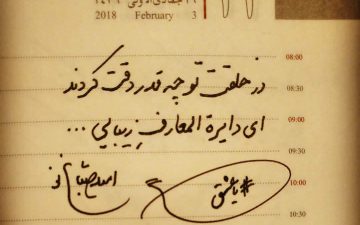 ۱۶ جمادی الاولی ۱۴۳۹
2018 February 3
08:00
در خلقت تو چه قدر دقت کردند
08:30
ای دایرة المعارفِ زیبایی ...
09:00
09:30
10:00
10:30